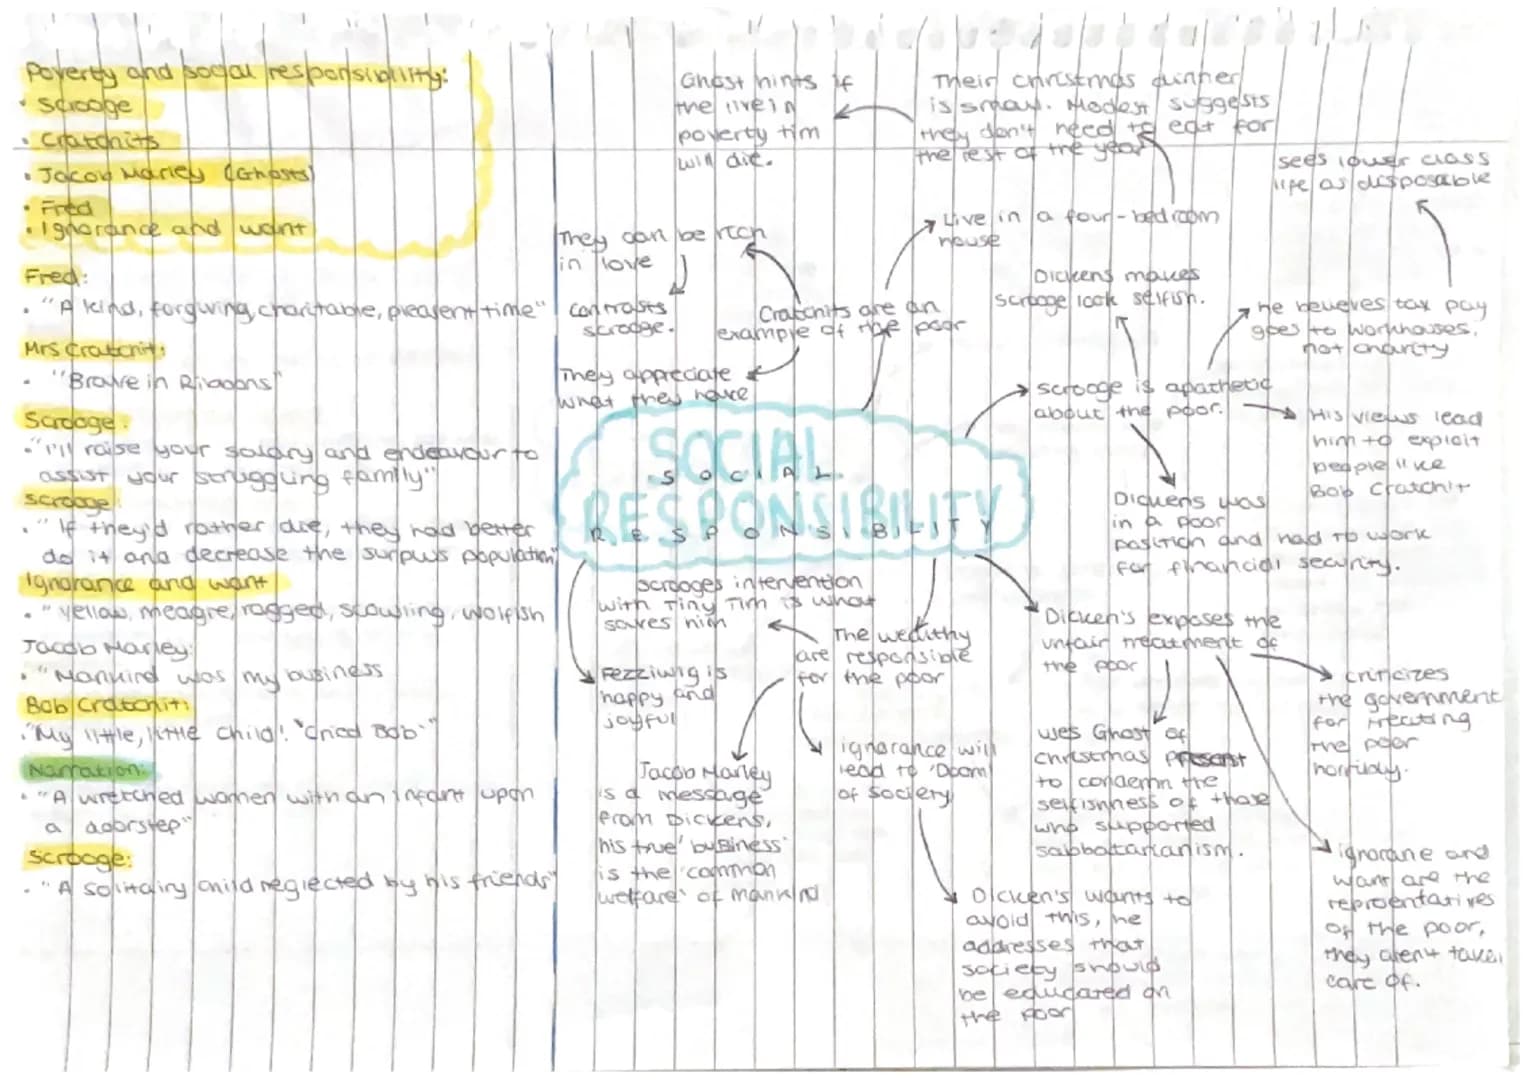 Poverty and social responsibility:
• Scrooge
• Cratchits
• Jacob Marley (Ghosts)
• Fred
• Ignorance and want
Fred:
• "A kind, forgiving, charitable, pleasent time"
Mrs Cratchit:
• "Brave in Ribbons"
Scrooge:
• "I'll raise your salary and endeavour to
assist your struggling family"
Scrooge:
• "If they'd rather die, they had better
do it and decrease the surplus population"
Ignorance and want
• "Yellow, meagre, ragged, scowling, wolfish
Jacob Marley:
• "Mankind was my business
Bob Cratchit:
• "My little, little child! "Cried Bob""
Narration:
• "A wretched women with an infant upon
a doorstep"
Scrooge:
• "A solitairy child neglected by his friends"
Ghost hints if
the live in
poverty tim
will die.
Their christmas dinner
is small. Modest suggests
they don't need to eat for
the rest of the year
Live in a four-bedroom
house
They can be rich
in love
contrasts
scrooge.
Cratchits are an
example of the poor
They appreciate
what they have
sees lower class
life as disposable
Dickens makes
scrooge look selfish.
He believes tax pay
goes to workhouses,
not charity
scrooge is apathetic
about the poor.
His views lead
him to exploit
people like
Bob Cratchit
Dickens was
in a poor
position and had to work
for financial security.
SOCIAL
SOCIAL
RESPONSIBILITY
RESPONSIBILITY
scrooges intervention
with Tiny Tim is what
saves him
The wealthy
are responsible
for the poor
Fezziwig is
happy and
joyful
Jacob Marley
is a message
from Dickens,
his true 'business'
is the 'common
welfare' of mankind
ignorance will
lead to 'Doom'
of society
Dicken's wants to
avoid this, he
addresses that
society should
be educated on
the poor
Dicken's exposes the
unfair treatment of
the poor
uses Ghost of
christmas present
to condemn the
selfishness of those
who supported
sabbatarianism.
criticizes
the government
for treating
the poor
horribly.
ignorane and
want are the
reprentatives
of the poor,
they arent taken
care of.